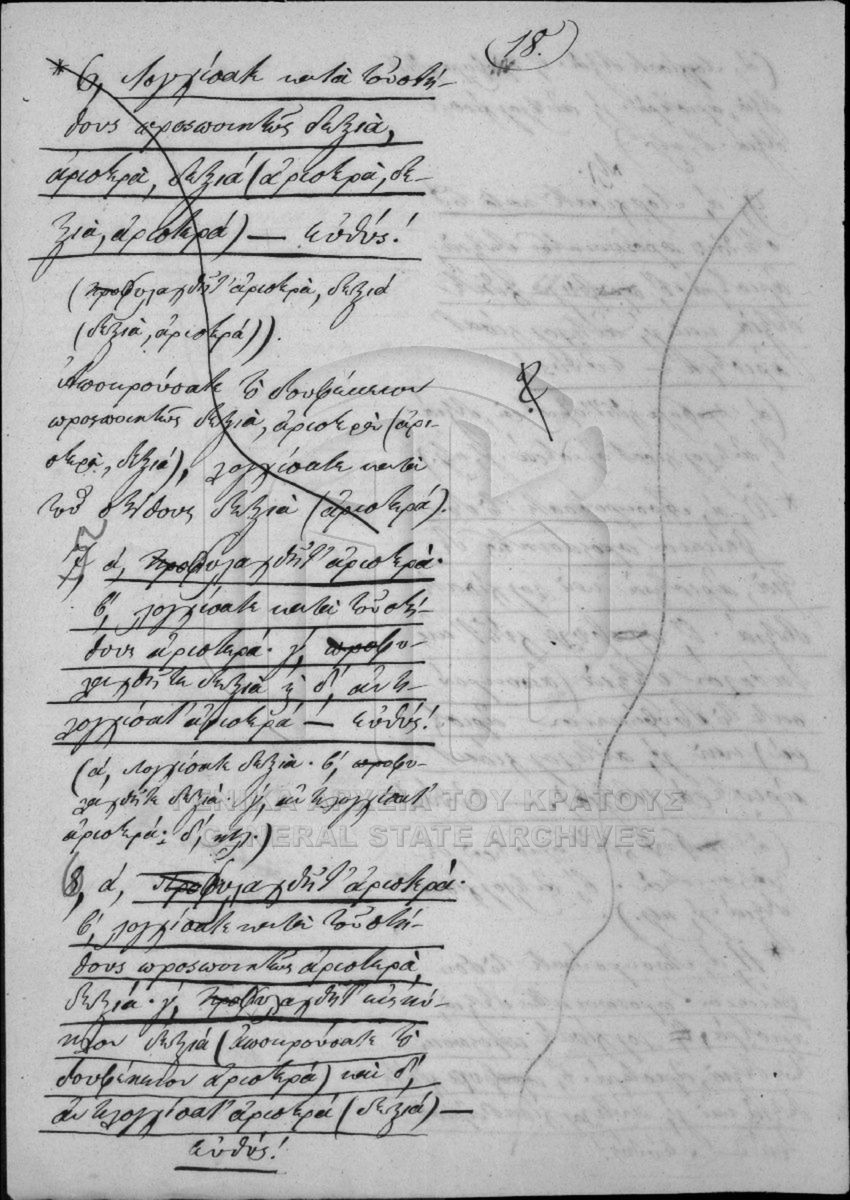 (18.)
* 6, Λογχίσατε κατὰ τοῦ στή-
θους προσποιητῶς δεξιὰ,
ἀριστερὰ, δεξιά (ἀριστερὰ, δε-
ξιὰ, ἀριστερά) — εὐθύς!
(προφυλαχθῆτ' ἀριστερὰ, δεξιά
(δεξιὰ, ἀριστερά)).
Ἀποκρούσατε τὸ δουφέκιον
προσποιητῶς δεξιὰ, ἀριστερὰ (ἀρι-
στερὰ, δεξιά), λογχίσατε κατὰ
τοῦ στήθους δεξιὰ (ἀριστερά).
7, ά, προφυλαχθῆτ' ἀριστερά·
β', λογχίσατε κατὰ τοῦ στή-
θους ἀριστερά· γ', προφυ-
λαχθῆτε δεξιὰ ἢ δ', ἀντι-
λογχίσατ' ἀριστερά — εὐθύς!
(ά, λογχίσατε δεξιὰ· β', προφυ-
λαχθῆτε δεξιά· γ', ἀντιλογχίσατ'
ἀριστερά· δ', κτλ.)
8, ά, Προφυλαχθῆτ' ἀριστερά·
β', λογχίσατε κατὰ τοῦ στή-
θους προσποιητῶς ἀριστερὰ,
δεξιά· γ', προφυλαχθῆτ'
δεξιά (ἀποκρούσατε τὸ
δουφέκιον ἀριστερά) καὶ δ',
ἀντιλογχίσατ' ἀριστερά (δεξιά) —
εὐθύς!
ΓΕΝΙΚΑ ΑΡΧΕΙΑ ΤΟΥ ΚΡΑΤΟΥΣ
GENERAL STATE ARCHIVES